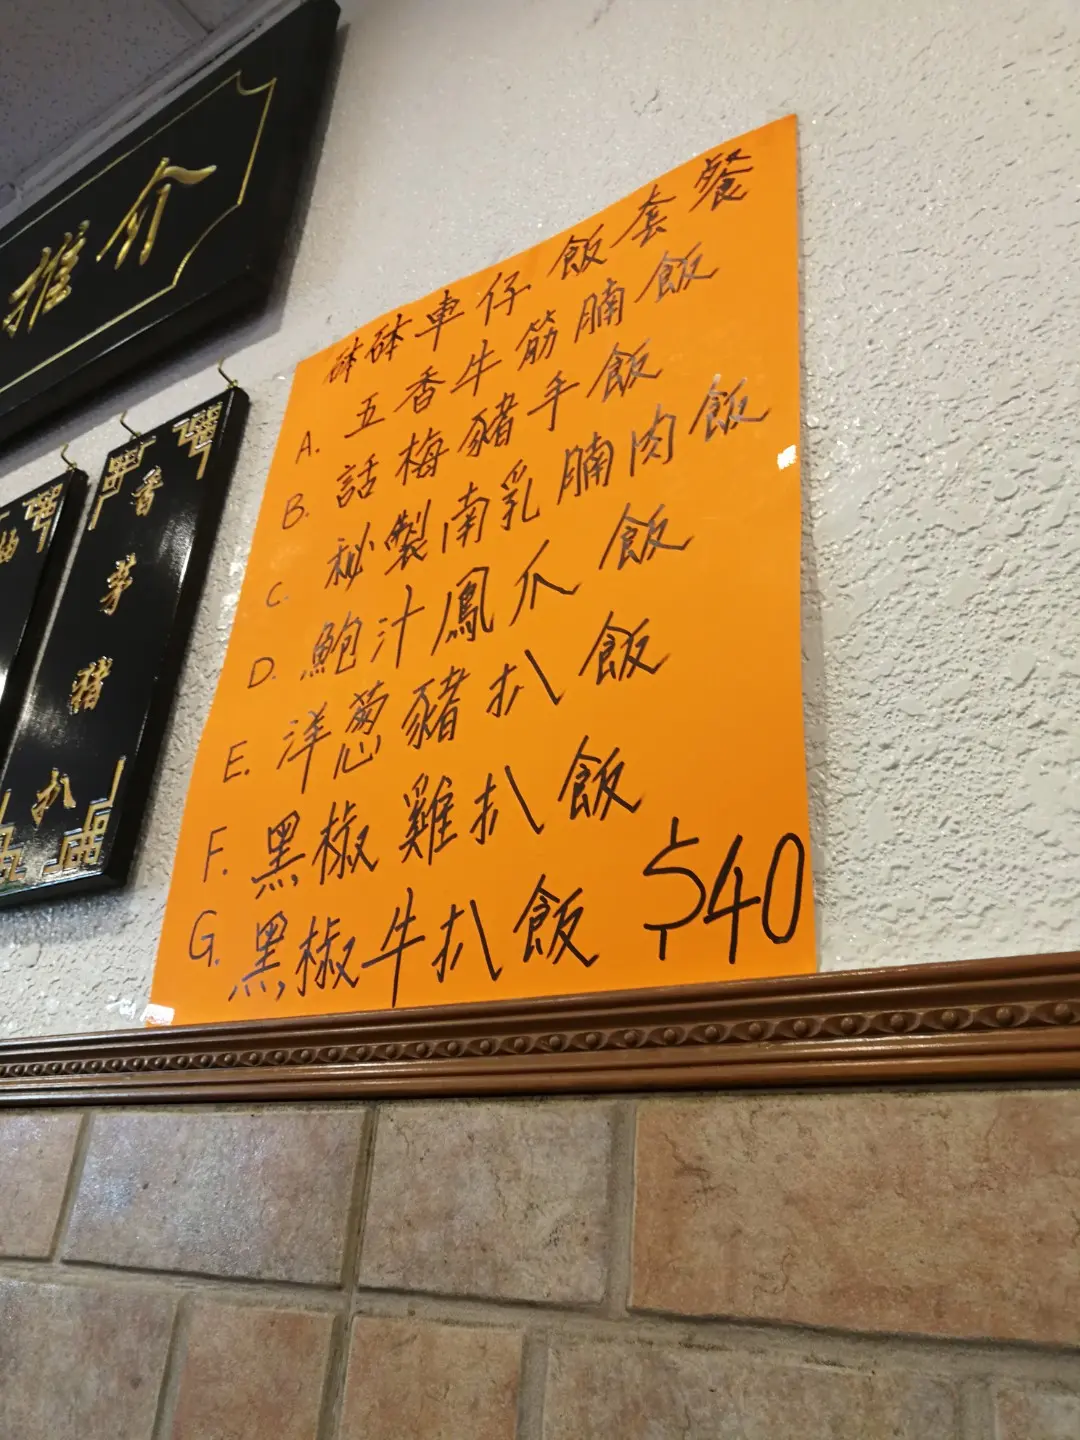 推介
砵砵車仔飯套餐
A. 五香牛筋腩飯
B. 話梅豬手飯
C. 秘製南乳腩肉飯
D. 鮑汁鳳爪飯
E. 洋葱豬扒飯
F. 黑椒雞扒飯
G. 黑椒牛扒飯 $40
香茅豬扒